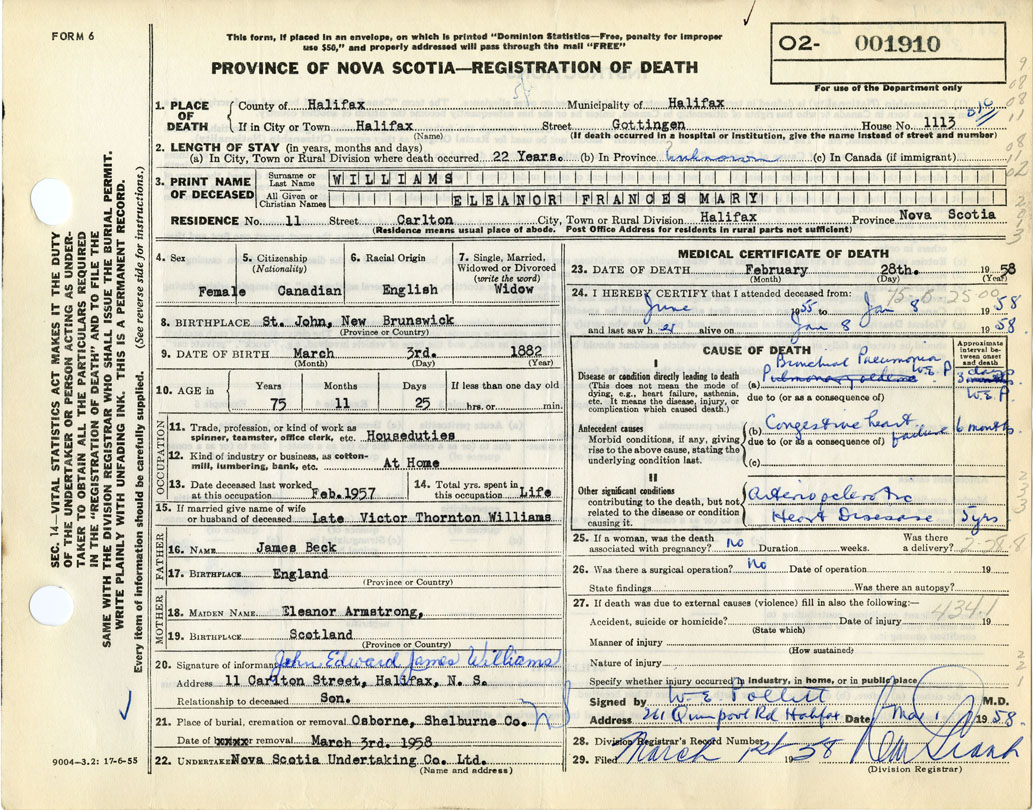 FORM 6
This form, if placed in an envelope, on which is printed "Dominion Statistics—Free, penalty for improper
use $50," and properly addressed will pass through the mail "FREE"
O2- 001910
For use of the Department only
PROVINCE OF NOVA SCOTIA—REGISTRATION OF DEATH
SEC. 14—VITAL STATISTICS ACT MAKES IT THE DUTY
OF THE UNDERTAKER OR PERSON ACTING AS UNDER-
TAKER TO OBTAIN ALL THE PARTICULARS REQUIRED
IN THE "REGISTRATION OF DEATH" AND TO FILE THE
SAME WITH THE DIVISION REGISTRAR WHO SHALL ISSUE THE BURIAL PERMIT.
WRITE PLAINLY WITH UNFADING INK. THIS IS A PERMANENT RECORD.
Every item of information should be carefully supplied. (See reverse side for instructions.)
1. PLACE OF DEATH
County of Halifax Municipality of Halifax
If in City or Town Halifax Street Gottingen House No. 1113
(Name) (If death occurred in a hospital or institution, give the name instead of street and number)
2. LENGTH OF STAY (in years, months and days)
(a) In City, Town or Rural Division where death occurred 22 Years. (b) In Province unknown (c) In Canada (if immigrant)
3. PRINT NAME OF DECEASED
Surname or Last Name WILLIAMS
All Given or Christian Names ELEANOR FRANCES MARY
RESIDENCE No. 11 Street Carlton City, Town or Rural Division Halifax Province Nova Scotia
(Residence means usual place of abode. Post Office Address for residents in rural parts not sufficient)
4. Sex Female
5. Citizenship (Nationality) Canadian
6. Racial Origin English
7. Single, Married, Widowed or Divorced (write the word) Widow
8. BIRTHPLACE St. John, New Brunswick
(Province or Country)
9. DATE OF BIRTH March 3rd. 1882
(Month) (Day) (Year)
10. AGE in Years Months Days If less than one day old
75 11 25 hrs. or min.
OCCUPATION
11. Trade, profession, or kind of work as
spinner, teamster, office clerk, etc. Houseduties
12. Kind of industry or business, as cotton-
mill, lumbering, bank, etc. At Home
13. Date deceased last worked
at this occupation Feb.1957
14. Total yrs. spent in
this occupation Life
15. If married give name of wife
or husband of deceased Late Victor Thornton Williams
FATHER
16. NAME James Beck
17. BIRTHPLACE England
(Province or Country)
MOTHER
18. MAIDEN NAME Eleanor Armstrong,
19. BIRTHPLACE Scotland
(Province or Country)
20. Signature of informant John Edward James Williams
Address 11 Carlton Street, Halifax, N. S.
Relationship to deceased Son.
21. Place of burial, cremation or removal Osborne, Shelburne Co.
Date of xxxxx or removal March 3rd. 1958
22. UNDERTAKER Nova Scotia Undertaking Co. Ltd.
(Name and address)
9004-3.2: 17-6-55
MEDICAL CERTIFICATE OF DEATH
23. DATE OF DEATH February 28th. 1958
(Month) (Day) (Year)
24. I HEREBY CERTIFY that I attended deceased from:
June 1955 to Jan 8 1958
and last saw her alive on Jan 8 1958
CAUSE OF DEATH
Approximate interval between onset and death
I
Disease or condition directly leading to death
(This does not mean the mode of
dying, e.g., heart failure, asthenia,
etc. It means the disease, injury, or
complication which caused death.)
Bronchial Pneumonia
(a) Pulmonary oedema W.E.P. 3 months days W.E.P.
due to (or as a consequence of)
Antecedent causes
Morbid conditions, if any, giving
rise to the above cause, stating the
underlying condition last.
(b) Congestive heart failure 6 months
due to (or as a consequence of)
(c)
II
Other significant conditions
contributing to the death, but not
related to the disease or condition
causing it.
Arteriosclerotic
Heart Disesase 5yrs
25. If a woman, was the death
associated with pregnancy? no Duration weeks. Was there
a delivery?
2-28.8
26. Was there a surgical operation? no Date of operation 19
State findings Was there an autopsy?
27. If death was due to external causes (violence) fill in also the following:—
434.1
Accident, suicide or homicide? Date of injury 19
(State which)
Manner of injury
(How sustained)
Nature of injury
Specify whether injury occurred in industry, in home, or in public place
Signed by W. E. Pollett M.D.
Address 261 Quinpool Rd Halifax Date Mar 1 1958
28. Division Registrar's Record Number
29. Filed March 1st 1958
(Division Registrar)